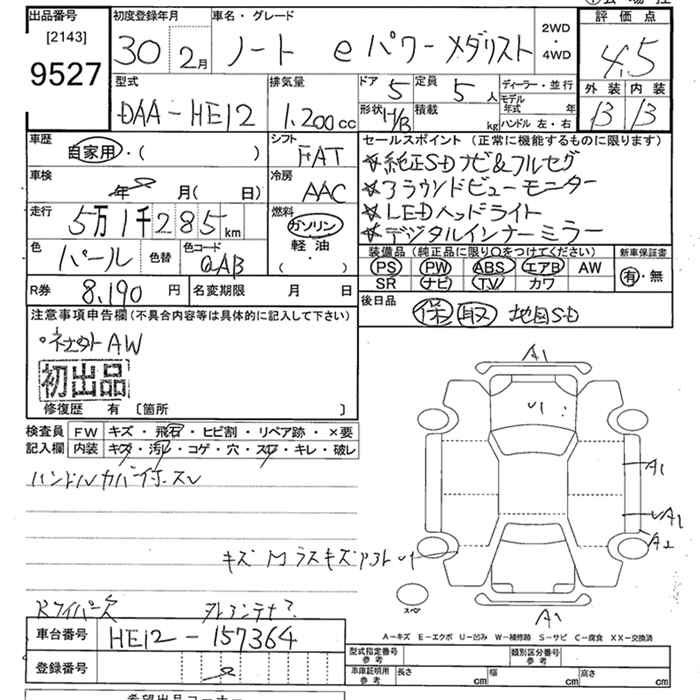 出品番号 初度登録年月 車名・グレード 評価点
[2143] 9527
30 2月 ノート eパワーメダリスト 2WD・4WD 4.5
型式 排気量 ドア 定員 ディーラー・並行 外装 内装
DAA-HE12 1.200cc 5 5人 モデル年式 年 B B
形状 H/B 積載 kg ハンドル 左・右
車歴 シフト セールスポイント (正常に機能するものに限ります)
自家用・( ) FAT ☆純正SDナビ&フルセグ
車検 冷房 ☆アラウンドビューモニター
年 月(日) AAC ☆LEDヘッドライト
走行 燃料 ☆デジタルインナーミラー
5万1千285km ガソリン 軽油 ( ・ )
色 色替 色コード 装備品 (純正品に限り○をつけてください) 新車保証書
パール QAB PS PW ABS エアB AW 有・無
SR ナビ TV カワ
R券 8,190円 名変期限 月 日 後日品 保 取 地図SD
注意事項申告欄 (不具合内容等は具体的に記入して下さい)
AW
初出品
修復歴 有 [箇所 ]
検査員 FW キズ・飛石・ヒビ割・リペア跡・×要
記入欄 内装 キズ・汚レ・コゲ・穴・スレ・キレ・破レ
ハンドルカバー付 ホスレ
A1
U1
A1
A1
A2
キズ
U1
スペア
A1
Rワイパー欠
A-キズ E-エクボ U-凹み W-補修跡 S-サビ C-腐食 XX-交換済
車台番号 HE12-157364
型式指定番号 参考 類別区分番号 参考
登録番号
車庫証明用 参考 長さ cm 幅 cm 高さ cm
希望出品コーナー